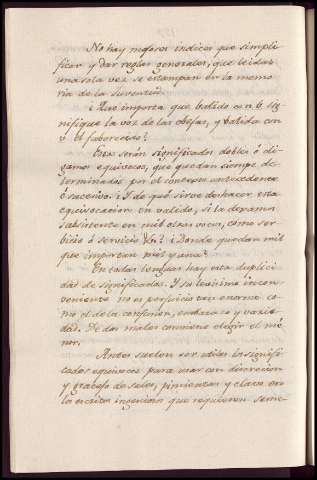 No hay mejores indices que simplifi-
ficar y dar reglas generales, que leidas
una sola vez se estampan en la memo-
ria de la Juventud.
¿Que importa que balido con b sig-
nifique la voz de las obejas, y valido con
v el faborecido?
Esos serán significados dobles ó di-
gamos equivocos, que quedan siempre de-
terminados por el contexto antecedente
ó sucesivo. ¿Y de qué sirve deshacer esta
equivocacion en valido, si la dexamos
subsistente en mil otras voces, como ser-
bicio ó servicio &n.? ¿Donde quedan mil
que importan mas y una?
En todas lenguas hay esta duplici-
dad de significados. Y su levisima incon-
veniente no es perjuicio tan enorme co-
mo el de la confusion, embarazo y varie-
dad. De dos males conviene elegir el me-
nor.
Antes suelen ser utiles los signifi-
cados equivocos para usar con discrecion
y gracejo de sales, pimientas y clavos en
los escritos ingeniosos que requieren seme-